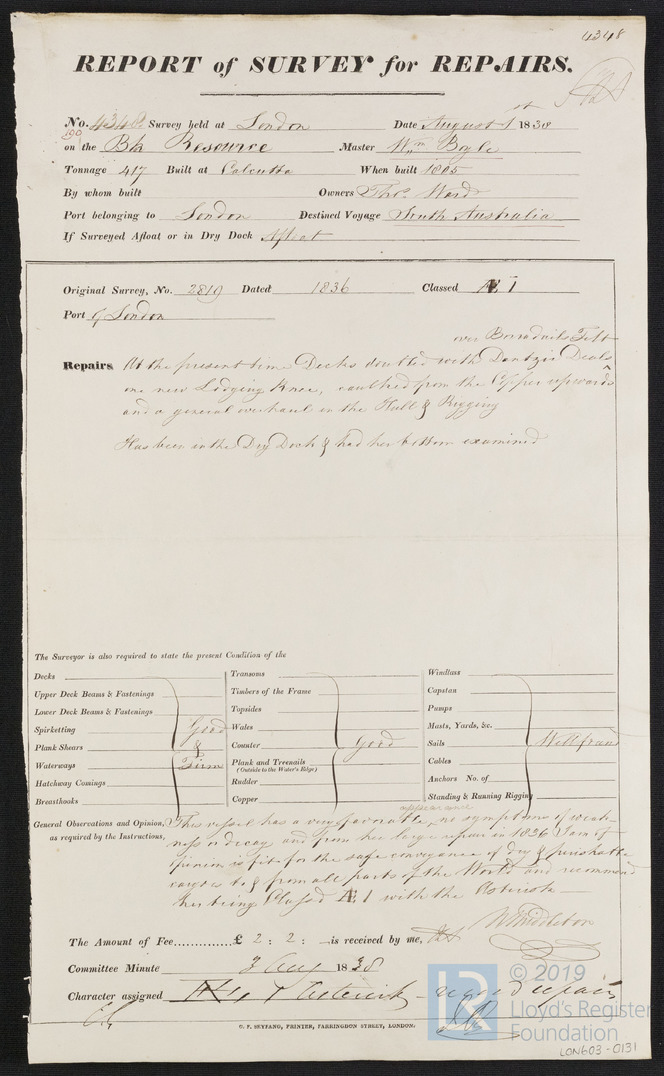 4348
REPORT of SURVEY for REPAIRS.
No. 4348 Survey held at London Date August 1st 1838
on the Bk Resource Master Wm Boyle
Tonnage 417 Built at Calcutta When built 1805
By whom built Owners Thos. Ward
Port belonging to London Destined Voyage South Australia
If Surveyed Afloat or in Dry Dock Afloat
Original Survey, No. 2819 Dated 1836 Classed Æ 1
Port of London
over Borradailes Felt
Repairs At the present time Decks doubled with Dantzic Deals
one new Lodging Knee, caulked from the Copper upwards
and a general overhaul in the Hull & Rigging
Has been in the Dry Dock & had her bottom examined
The Surveyor is also required to state the present Condition of the
Decks Transoms Windlass
Upper Deck Beams & Fastenings Timbers of the Frame Capstan
Lower Deck Beams & Fastenings Topsides Pumps
Spirketting Good Wales Masts, Yards, &c.
Plank Shears & Counter Good Sails Well found
Waterways Firm Plank and Treenails Cables
(Outside to the Water's Edge)
Hatchway Comings Rudder Anchors No. of
Breasthooks Copper Standing & Running Rigging
appearance
General Observations and Opinion, This vessel has a very favorable, no symptoms of weak-
as required by the Instructions, ness or decay and from her large repair in 1836 I am of
opinion is fit for the safe conveyance of Dry & perishable
cargoes to & from all parts of the World and recommend
her being Classed Æ 1 with the Asterisk
W Middleton
The Amount of Fee £ 2 : 2 : — is received by me,
Committee Minute 3 Aug 1838
Character assigned Asterisk repairs
C. F. SEYFANG, PRINTER, FARRINGDON STREET, LONDON.
© 2019
LR
Lloyd's Register
Foundation
LON603-0131